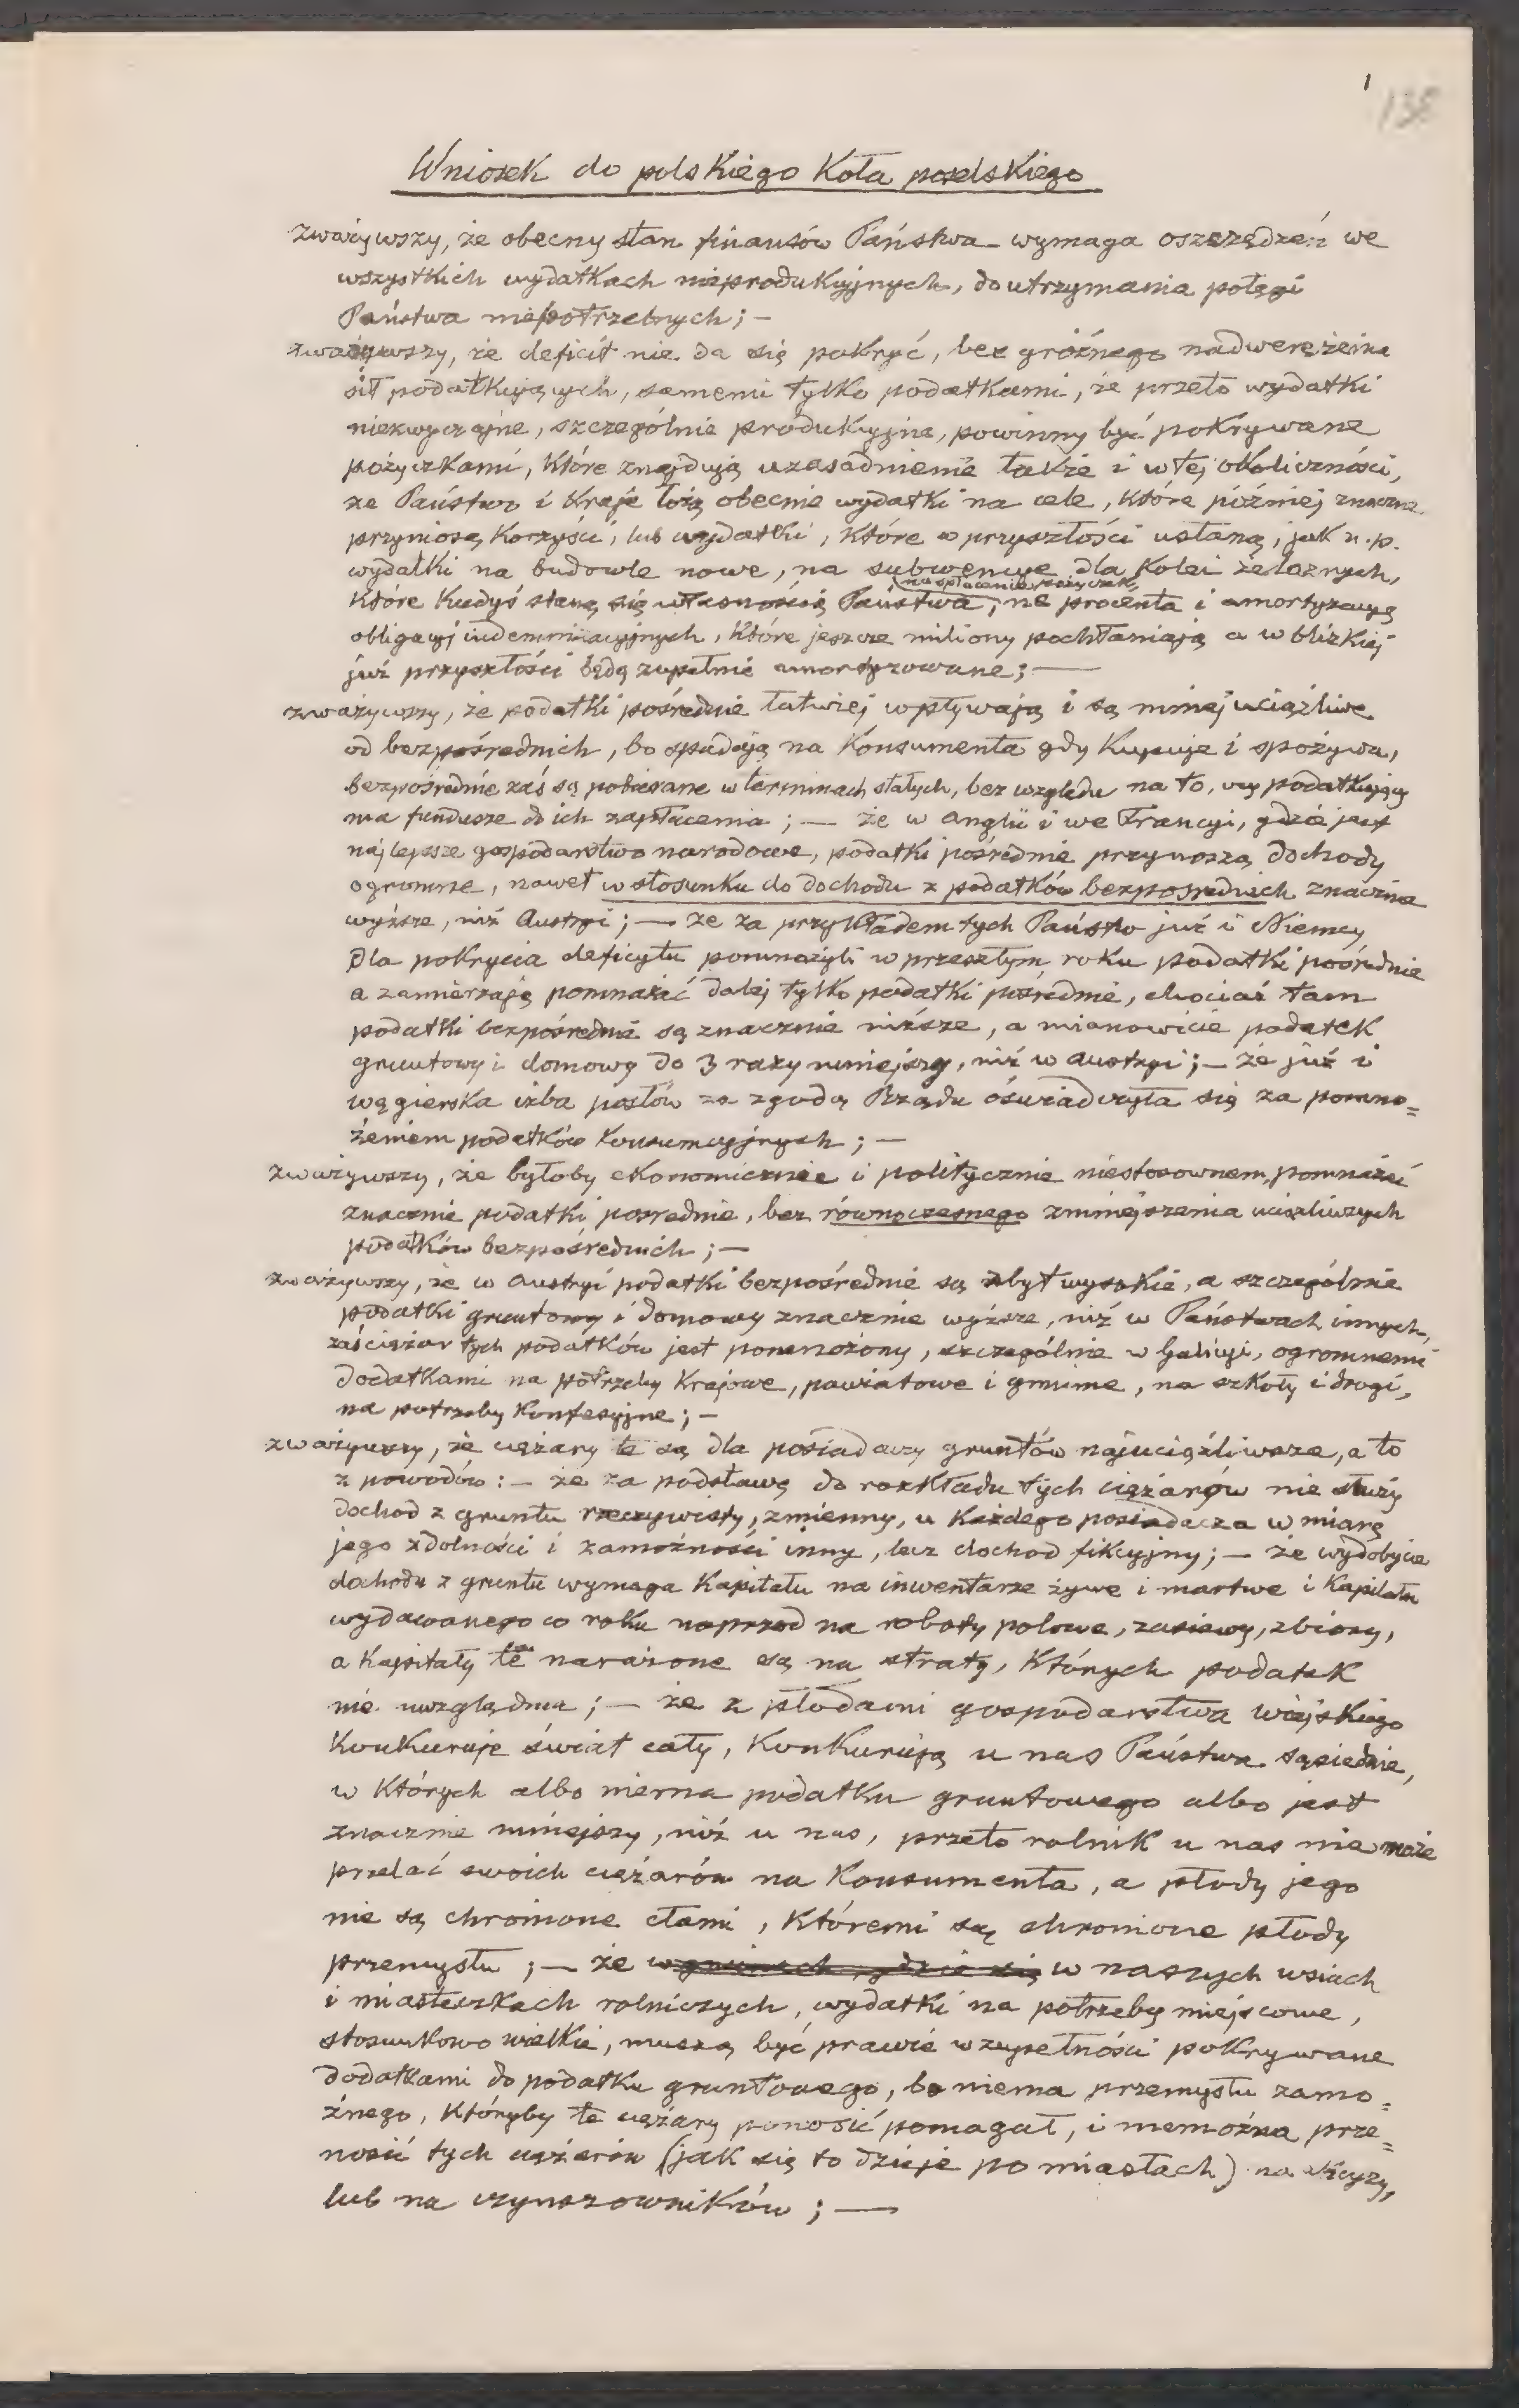 1
138
Wniosek do polskiego Koła poselskiego
zważywszy, że obecny stan finansów Państwa wymaga oszczędzeń we
wszystkich wydatkach nieprodukcyjnych, do utrzymania potęgi
Państwa niepotrzebnych; —
zważywszy, że deficit nie da się pokryć, bez groźnego nadwerężenia
sił podatkujących, samemi tylko podatkami, że przeto wydatki
niezwyczajne, szczególnie produkcyjne, powinny być pokrywane
pożyczkami, które znajdują uzasadnienie także i w tej okoliczności,
że Państwo i Kraje łożą obecnie wydatki na cele, które później znaczne
przyniosą Korzyści, lub wydatki, które w przyszłości ustaną, jak n.p.
wydatki na budowle nowe, na subwencye dla Kolei żelaznych,
na spłacenie pożyczek,
które kiedyś staną się własnością Państwa, na procenta i amortyzacyę
obligacyj indemnizacyjnych, które jeszcze miliony pochłaniają a w blizkiej
już przyszłości będą zupełnie amortyzowane; —
zważywszy, że podatki pośrednie łatwiej wpływają i są mniej uciążliwe
od bezpośrednich, bo spadają na Konsumenta gdy Kupuje i spożywa,
bezpośrednie zaś są pobierane w terminach stałych, bez względu na to, czy podatkujący
ma fundusze do ich zapłacenia; — że w Anglii i we Francyi, gdzie jest
najlepsze gospodarstwo narodowe, podatki pośrednie przynoszą dochody
ogromne, nawet w stosunku do dochodu z podatków bezpośrednich znacznie
wyższe, niż Austryi; — że za przykładem tych Państw już i Niemcy
dla pokrycia deficytu pomnożyli w przeszłym roku podatki pośrednie
a zamierzają pomnażać dalej tylko podatki pośrednie, chociaż tam
podatki bezpośrednie są znacznie niższe, a mianowicie podatek
gruntowy i domowy do 3 razy mniejszy, niż w Austryi; — że już i
węgierska izba posłów za zgodą Rządu oświadczyła się za pomno=
żeniem podatków konsumcyjnych; —
zważywszy, że byłoby ekonomicznie i politycznie niestosownem, pomnażać
znacznie podatki pośrednie, bez równoczesnego zmniejszenia uciążliwszych
podatków bezpośrednich; —
zważywszy, że w Austryi podatki bezpośrednie są zbyt wysokie, a szczególnie
podatki gruntowy i domowy znacznie wyższe, niż w Państwach innych,
zaś ciężar tych podatków jest pomnożony, szczególnie w Galicyi, ogromnemi
dodatkami na potrzeby Krajowe, powiatowe i gminne, na szkoły i drogi,
na potrzeby Konfesyjne; —
zważywszy, że ciężary te są dla posiadaczy gruntów najuciążliwsze, a to
z powodów: — że za podstawę do rozkładu tych ciężarów nie służy
dochod z gruntu rzeczywisty, zmienny, u Każdego posiadacza w miarę
jego zdolności i zamożności inny, lecz dochod fikcyjny; — że wydobycie
dochodu z gruntu wymaga Kapitału na inwentarze żywe i martwe i Kapitału
wydawanego co roku naprzod na roboty polowe, zasiewy, zbiory,
a Kapitały te narażone są na straty, Których podatek
nie uwzględnia; — że z płodami gospodarstwa wiejskiego
Konkuruje świat cały, Konkurują u nas Państwa sąsiednie,
w Których albo niema podatku gruntowego albo jest
znacznie mniejszy, niż u nas, przeto rolnik u nas nie może
przelać swoich ciężarów na Konsumenta, a płody jego
nie są chronione cłami, Któremi są chronione płody
przemysłu; — że w gminach, gdzie się w naszych wsiach
i miasteczkach rolniczych, wydatki na potrzeby miejscowe,
stosunkowo wielkie, muszą być prawie w zupełności pokrywane
dodatkami do podatku gruntowego, bo niema przemysłu zamo=
żnego, Któryby te ciężary ponosić pomagał, i niemożna prze=
nosić tych ciężarów (jak się to dzieje po miastach) na
lub na czynszowników; —